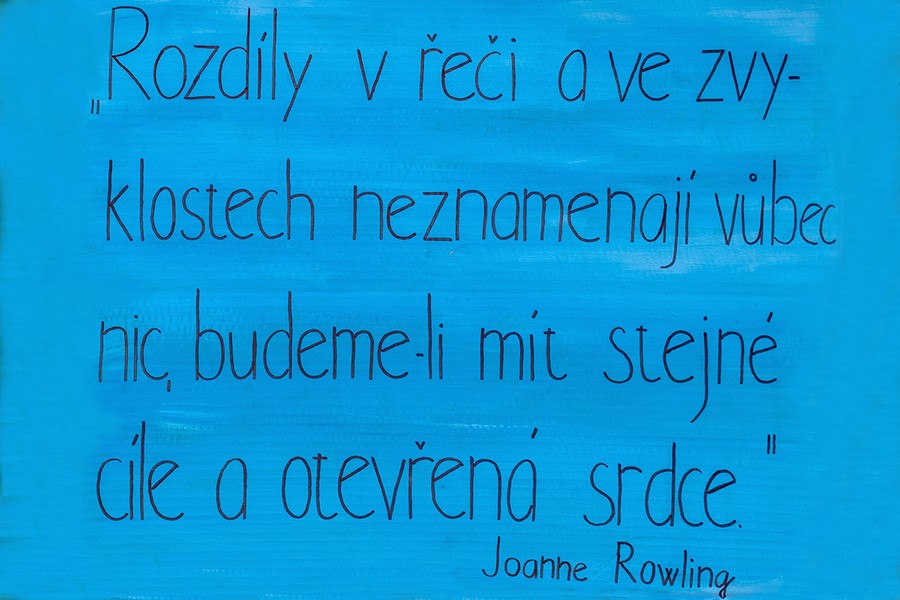 „Rozdíly v řeči a ve zvy-
klostech neznamenají vůbec
nic, budeme-li mít stejné
cíle a otevřená srdce."
Joanne Rowling